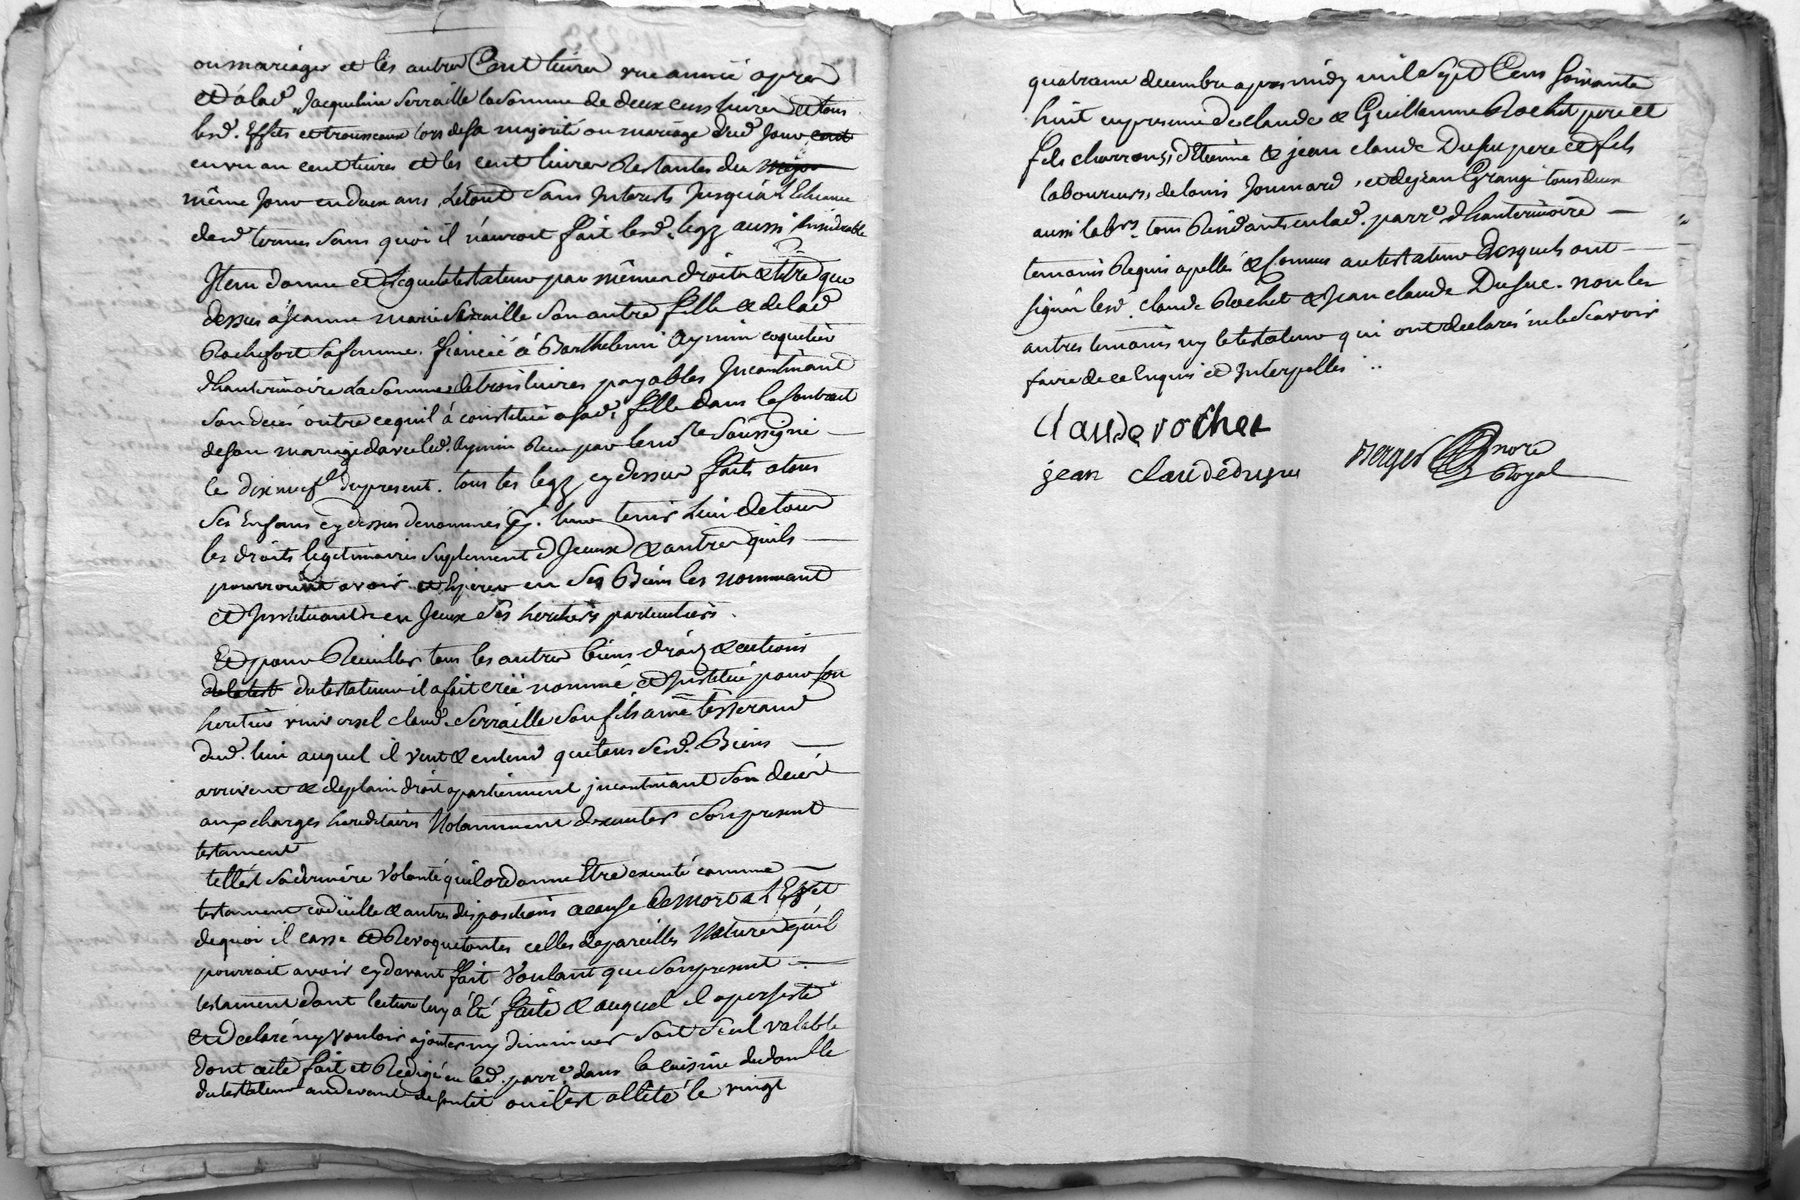 ou mariages et les autres Cent livres une année après
et à lad. Jacqueline Serraille la somme de deux cens livres et tous
lesd. Effets et trousseaux lors de sa majorité ou mariage dud. Jour cent
en un an cent livres et les cent livres Restantes du
même Jour en deux ans, Le tout sans Interests Jusqu'à L'Echeance
desd. termes sans quoi il n'auroit fait lesd. legz aussi Considerable
Item donne et Legue le testateur par mêmes droits et titre que
dessus à Jeanne marie Serraille son autre fille et de lad.
Rochefort sa femme, fiancée à Barthelemi Aymin coquetier
d'hauterivoire La somme de trois livres payables Incontinant
son deces outre ce quil à constitué a sad. fille dans le Contract
de son mariage avec led. Aymin Receu par le no.re Soussigné
le dix neuf du present. tous les legz cy dessus faits a tous
ses Enfans cy dessus denommés pr. leur tenir Lieu de tous
les droits legitimaires suplement d'Jceux & autres quils
pourroient avoir et Esperer en ses Biens les nommant
et Jnstituant en Jceux ses heritiers particuliers.
Et pour Recuillir tous les autres biens droitz & actions
de le test du testateur il a fait créé nommé et Jnstitué pour son
heritier universel Claud. Serraille son fils ainé tisserand
dud. lieu auquel il veut & entend que tous sesd. Biens
arrivent & de plain droit apartiennent jncontinant son decés
aux charges hereditaires Notamment d'executer Son present
testament
tell'est sa derniere Volonté qu'il ordonne Etre executé comme
testament codicille & autres dispositions a cause de mort a L'Effet
de quoi il casse et Revoque toutes celles de pareilles Natures qu'il
pourroit avoir cy devant fait Voulant que son present
testament dont lecture luy à été faite & auquel il a persisté
et declaré ny Vouloir ajouter ny diminuer soit seul valable
dont acte fait et Redigé en lad. parr.e dans la cuisine du domlle
du testateur au devant de son lit ou il est allité le vingt
quatrieme decembre apres midy mil sept Cens soixante
huit en presence de claude & Guillaume Rochet pere et
fils charrons, d'Etienne & jean claude Dusuc pere et fils
laboureurs, de louis Joannard, et de jean Grange tous deux
aussi labrs. tous Residants en lad. parr.e d'hauterivoire
temoins Requis apellés & Connus au testateur Desquels ont
signé lesd. claude Rochet & Jean claude Dusuc. non les
autres temoins ny le testateur qui ont declarés ne le Scavoir
faire de ce Enquis et Interpellés
Claude rochet
jean claude dusuc
Berger nore
Royal